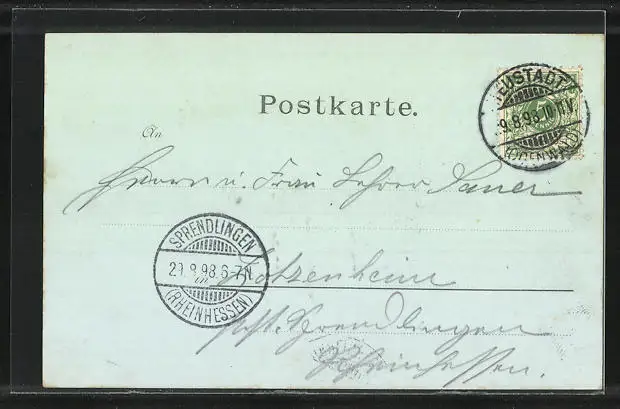 Postkarte.
NEUSTADT
9.8.98.10-11V.
(ODENWALD)
5
An
Herrn u. Frau Lehrer Sauer
SPRENDLINGEN
8.98.6-7N
(RHEINHESSEN)
in
Zotzenheim
post. Sprendlingen
Rheinhessen.